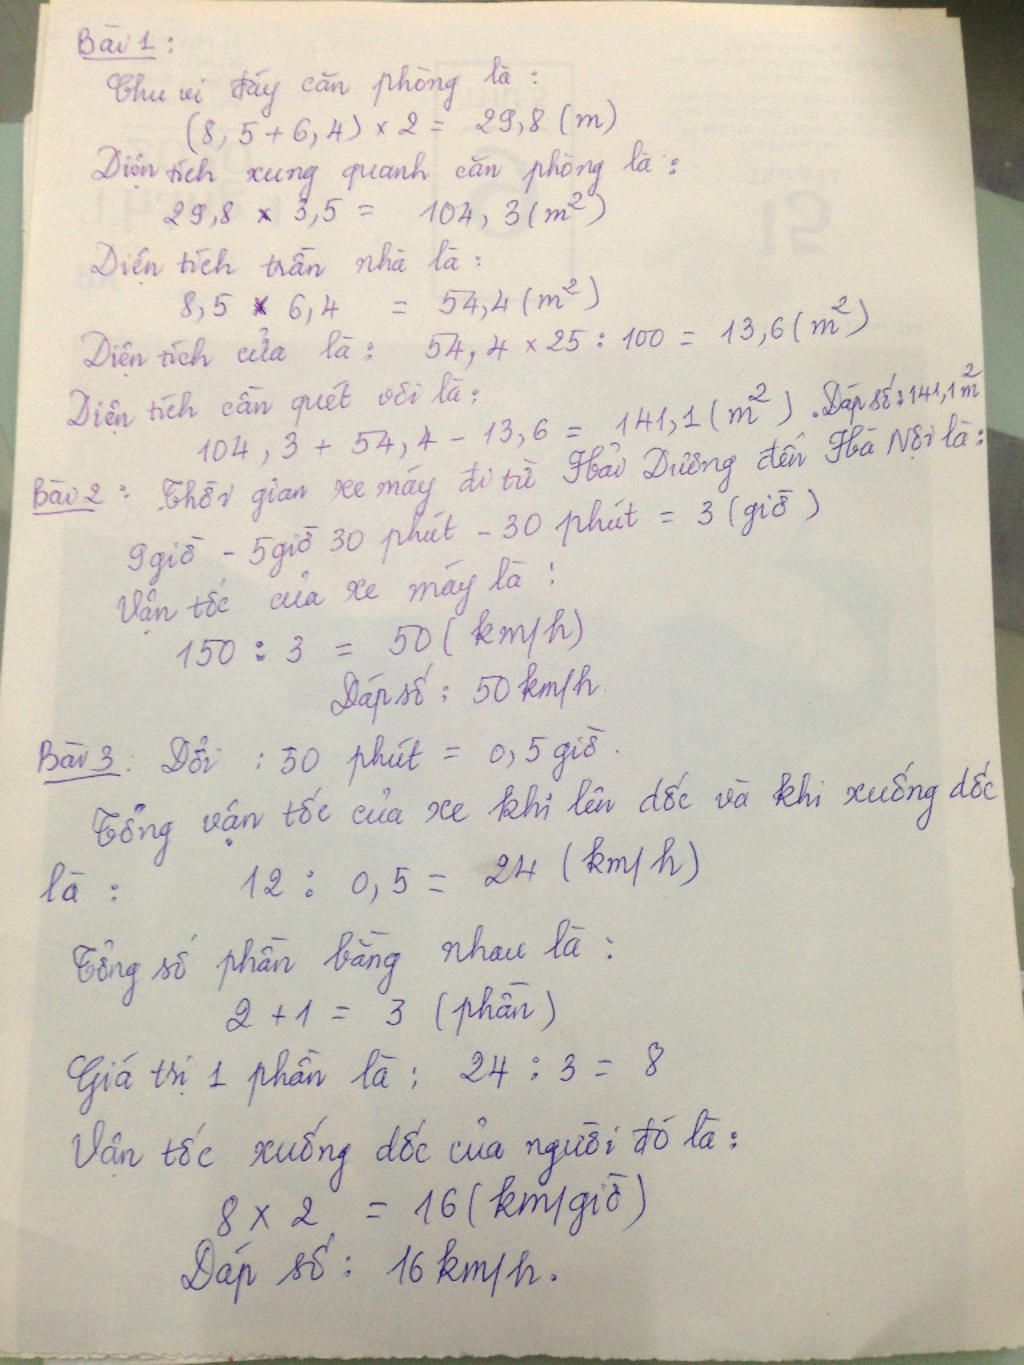 Bài 1:
Chu vi đáy căn phòng là:
(8,5+6,4) × 2 = 29,8 (m)
Diện tích xung quanh căn phòng là:
29,8 × 3,5 = 104,3 (m²)
Diện tích trần nhà là:
8,5 × 6,4 = 54,4 (m²)
Diện tích cửa là: 54,4 × 25 : 100 = 13,6 (m²)
Diện tích cần quét vôi là:
104,3 + 54,4 - 13,6 = 141,1 (m²). Đáp số: 141,1m²
Bài 2: Thời gian xe máy đi từ Hải Dương đến Hà Nội là:
9giờ - 5giờ 30 phút - 30 phút = 3 (giờ)
Vận tốc của xe máy là:
150 : 3 = 50 (km/h)
Đáp số: 50 km/h.
Bài 3: Đổi: 30 phút = 0,5 giờ.
Tổng vận tốc của xe khi lên dốc và khi xuống dốc
là: 12 : 0,5 = 24 (km/h)
Tổng số phần bằng nhau là:
2 + 1 = 3 (phần)
Giá trị 1 phần là: 24 : 3 = 8
Vận tốc xuống dốc của người đó là:
8 × 2 = 16 (km/giờ)
Đáp số: 16 km/h.